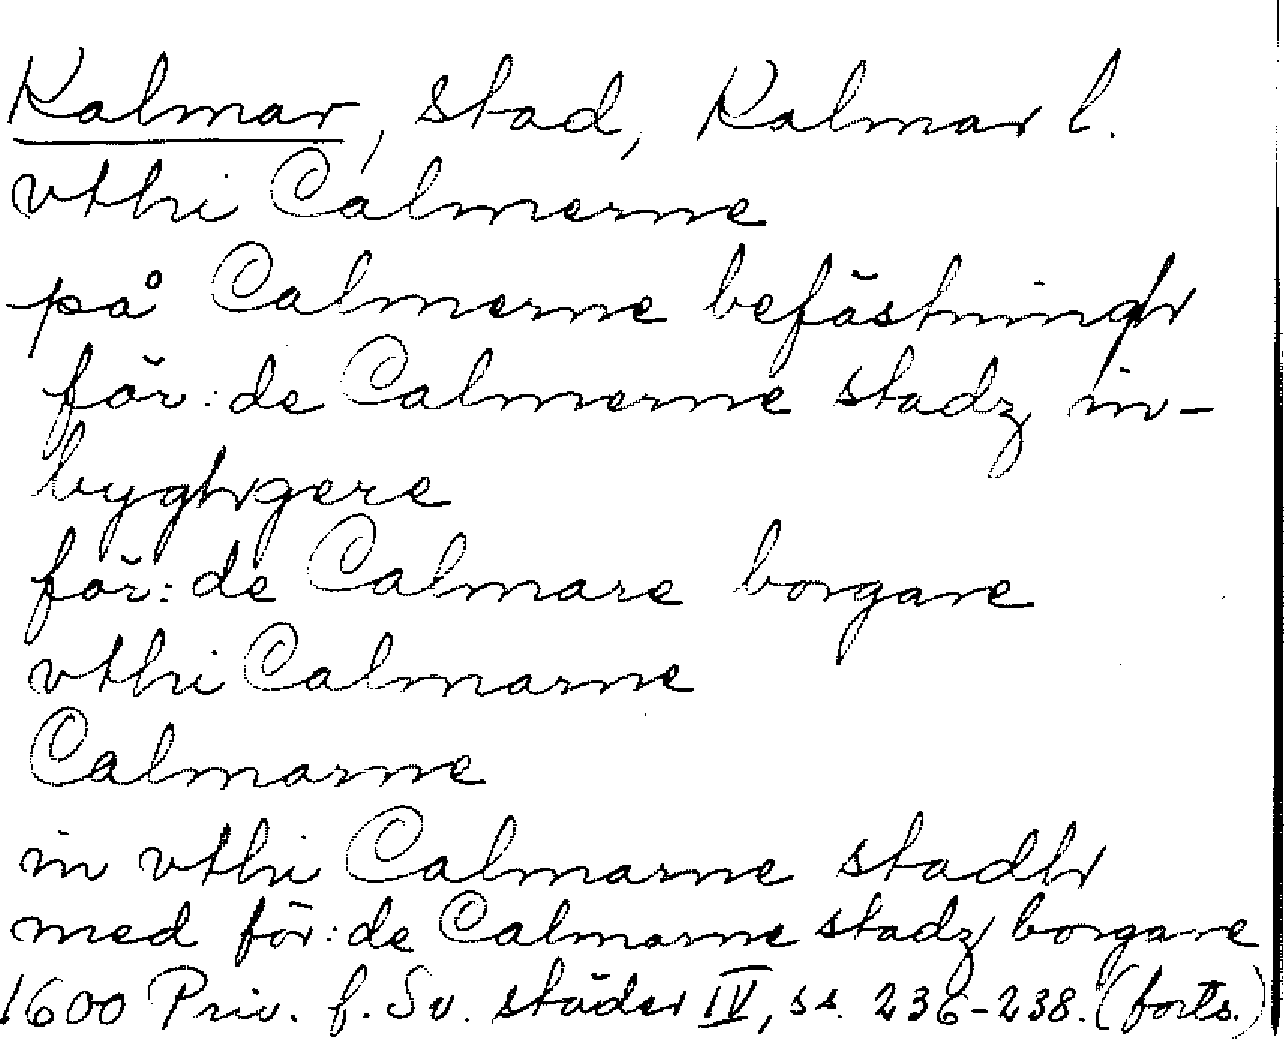 Kalmar, stad, Kalmar l.
vthi Calmerne
på Calmerne befästningh
för:de Calmerne stadz in-
byghgere
för:de Calmare borgare
vthi Calmarne
Calmarne
in vthi Calmarne stadh
med för:de Calmarne stadz borgare
1600 Priv. f. Sv. städer IV, ss. 236-238. (forts.)